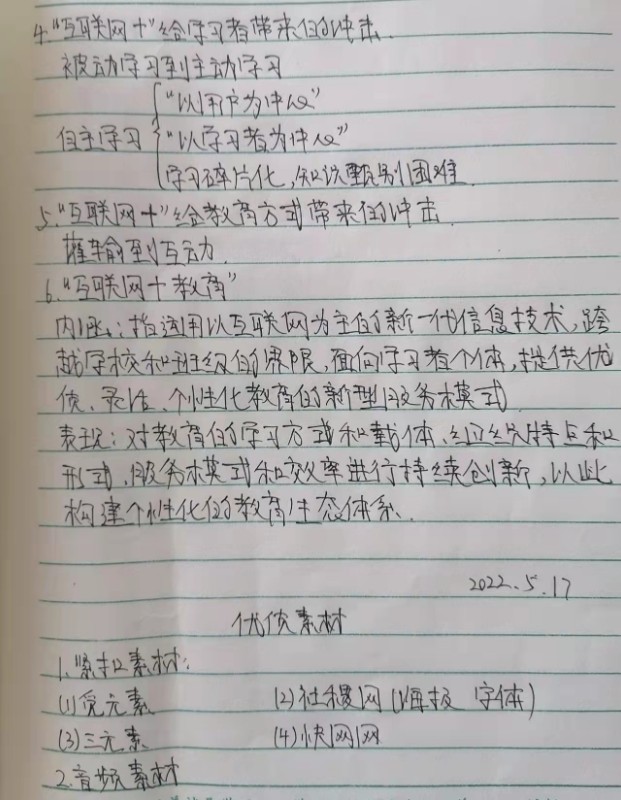 4."互联网+"给学习者带来的冲击.
被动学习到主动学习
"以用户为中心"
自主学习 "以学习者为中心"
学习碎片化,知识甄别困难.
5."互联网+"给教育方式带来的冲击.
灌输到互动.
6."互联网+教育"
内涵:指运用以互联网为主的新一代信息技术,跨
越学校和班级的界限,面向学习者个体,提供优
质、灵活、个性化教育的新型服务模式
表现:对教育的学习方式和载体、组织特点和
形式、服务模式和效率进行持续创新,以此
构建个性化的教育生态体系.
2022.5.17
优质素材
1.素材:
(1)觅元素 (2)社稷网(海报 字体)
(3)三元素 (4)快网网
2.音频素材